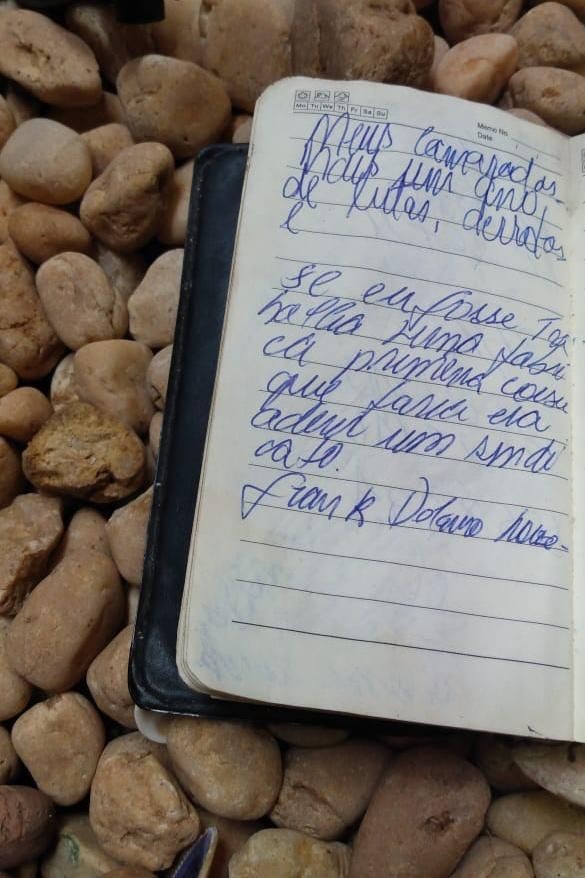 Mo Tu We Th Fr Sa Su
Memo No.
Date
Meus camaradas
mais um ano,
de lutas, derrotas
e
se eu fosse Tra
balha numa fabri
ca primeira coisa
que faria era
aderir um sindi
cato.
Frank Delano